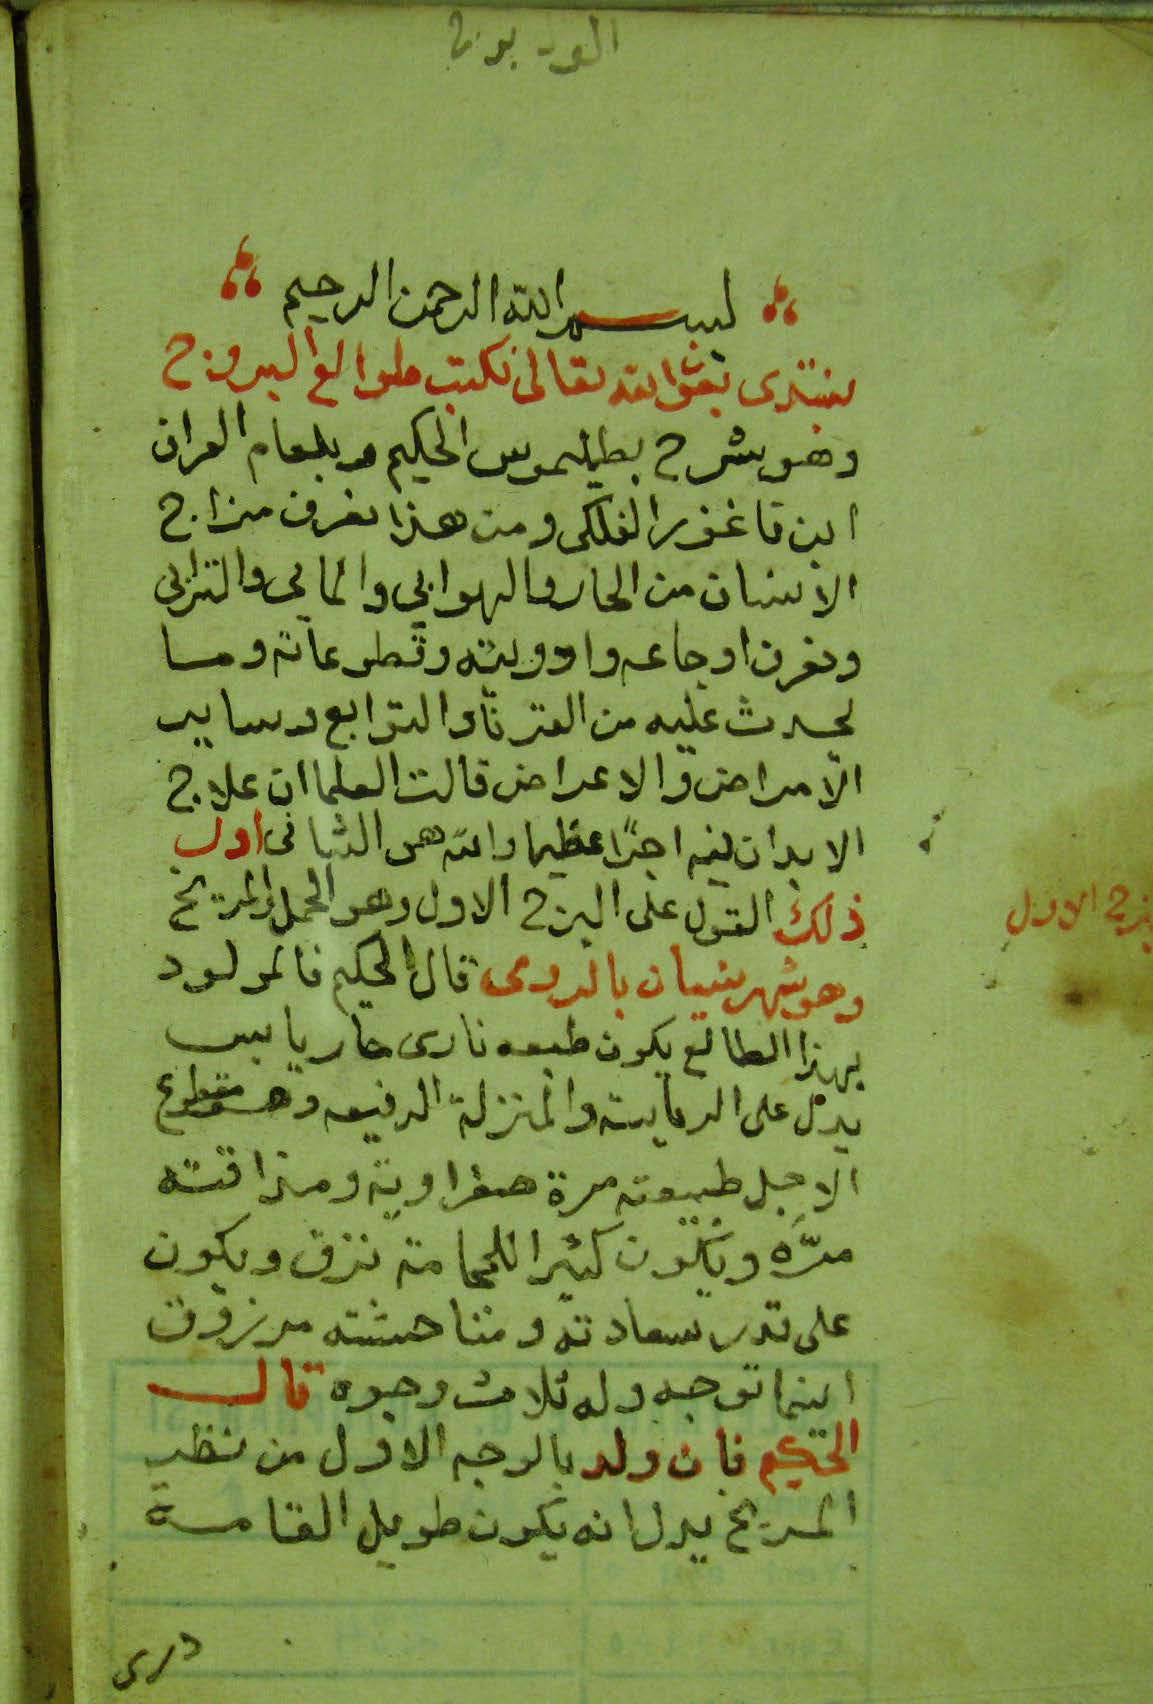 بسم الله الرحمن الرحيم
نبتدى بعون الله تعالى نكتب طوالع البروج
وهو شرح بطليموس الحكيم وبلعام العراف
ابن قاغفور الفلكى ومن هذا تعرف مزاج
الانسان من الحار والهوايي والمايي والترابى
وتعرف اوجاعه وادويته وقطوعاته وما
يحدث عليه من القرنا والتوابع وساير
الامراض والاعراض قالت العلما ان علاج
الابدان فيه اجرًا عظيما والله هو الشافى اول
ذلك القول على البرج الاول وهو الحمل والمريخ
وهو شهر نيسان بالرومى قال الحكيم فالمولود
بهذا الطالع يكون طبعه نارى حار يابس
يدل على الرياسة والمنزلة الرفيعه وهو مقطوع
الاجل طبيعته مرة صفراوية ومذاقته
مرَّه ويكون كثير اللجاجة نزق ويكون
على قدر سعادته ومناحسته مرزوق
اينما توجه وله ثلاث وجوه قال
الحكيم فان ولد بالوجه الاول من نظر
المريخ يدل انه يكون طويل القامة
برج الاول
درى